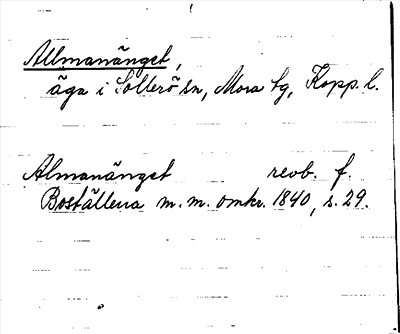 Allmanänget,
äga i Sollerö sn, Mora tg, Kopp. l.
Almanänget reob. f.
Boställena m.m. omkr. 1840, s. 29.